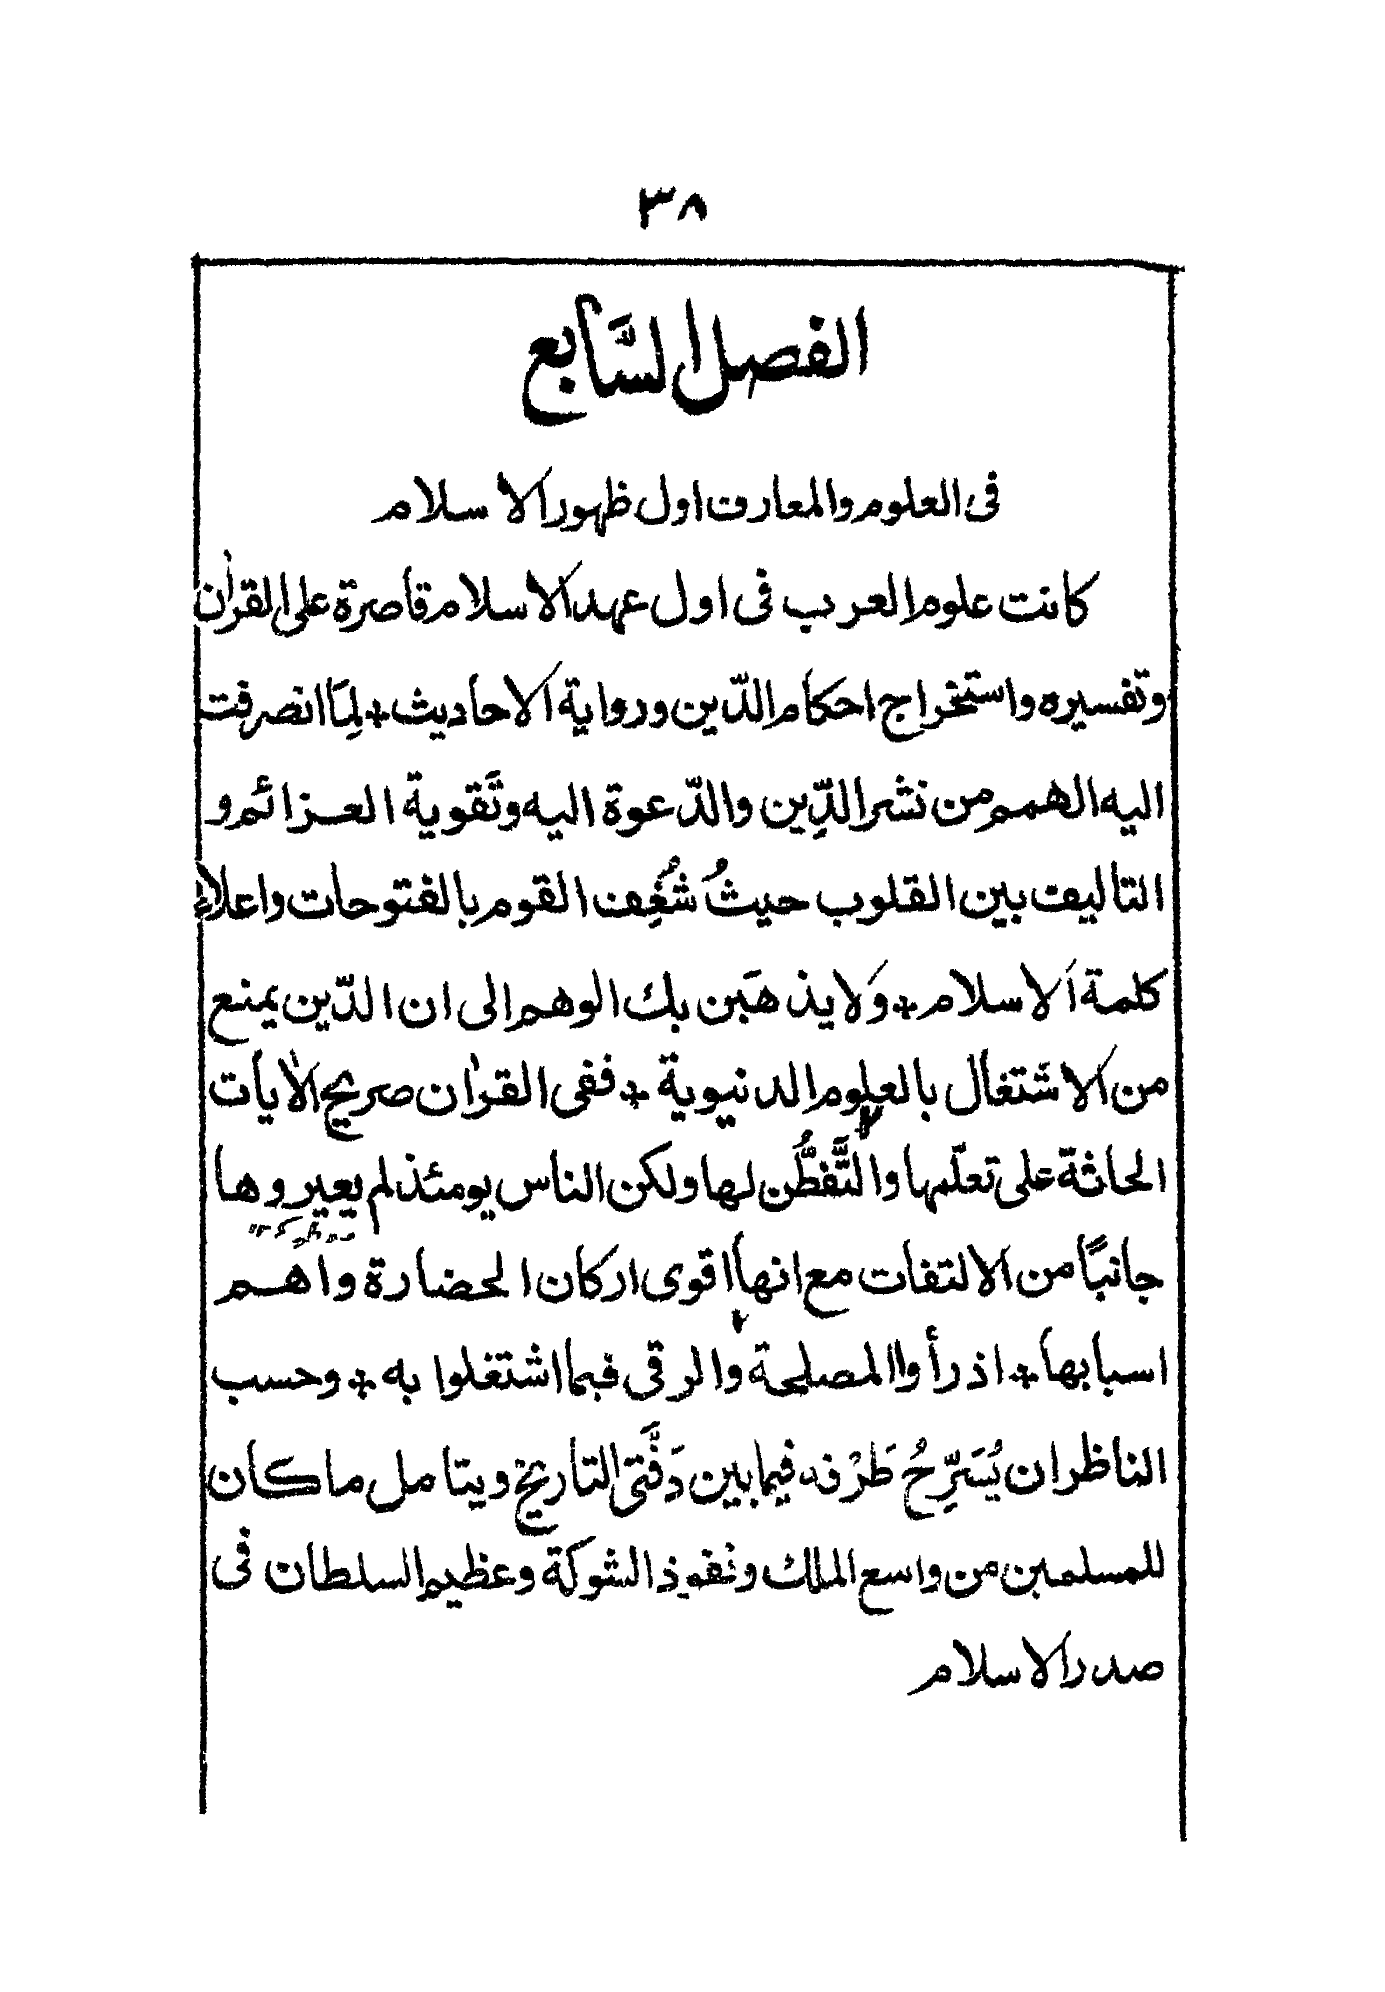 ٣٨
الفصل السَّابع
فى العلوم والمعارف اول ظهور الاسلام
كانت علوم العرب فى اول عهد الاسلام قاصرة على القراٰن
وتفسيره واستخراج احكام الدّين ورواية الاحاديث + لِمَا انصرفت
اليه الهمم من نشر الدِّين والدّعوة اليه وتَقوية العزائم و
التاليف بين القلوب حيثُ شُغِف القوم بالفتوحات واعلاءِ
كلمة الاسلام + وَلا يذهَبن بك الوهم الى ان الدّين يمنع
من الاشتغال بالعلوم الدنيوية + ففى القراٰن صريح الاٰيات
الحاثة على تعلّمها والتَّفطُّن لها ولكن الناس يومئذ لم يعيروها
جانبًا من الالتفات مع انها اقوى اركان الحضارة واهم
اسبابها + اذ رأوا المصلحة والرقى فيما اشتغلوا به + وحسب
الناظر ان يُسَرِّحُ طَرْفه فيما بين دَفَّتى التاريخ ويتامل ماكان
للمسلمين من واسع الملك ونفوذ الشوكة وعظيم السلطان فى
صدر الاسلام